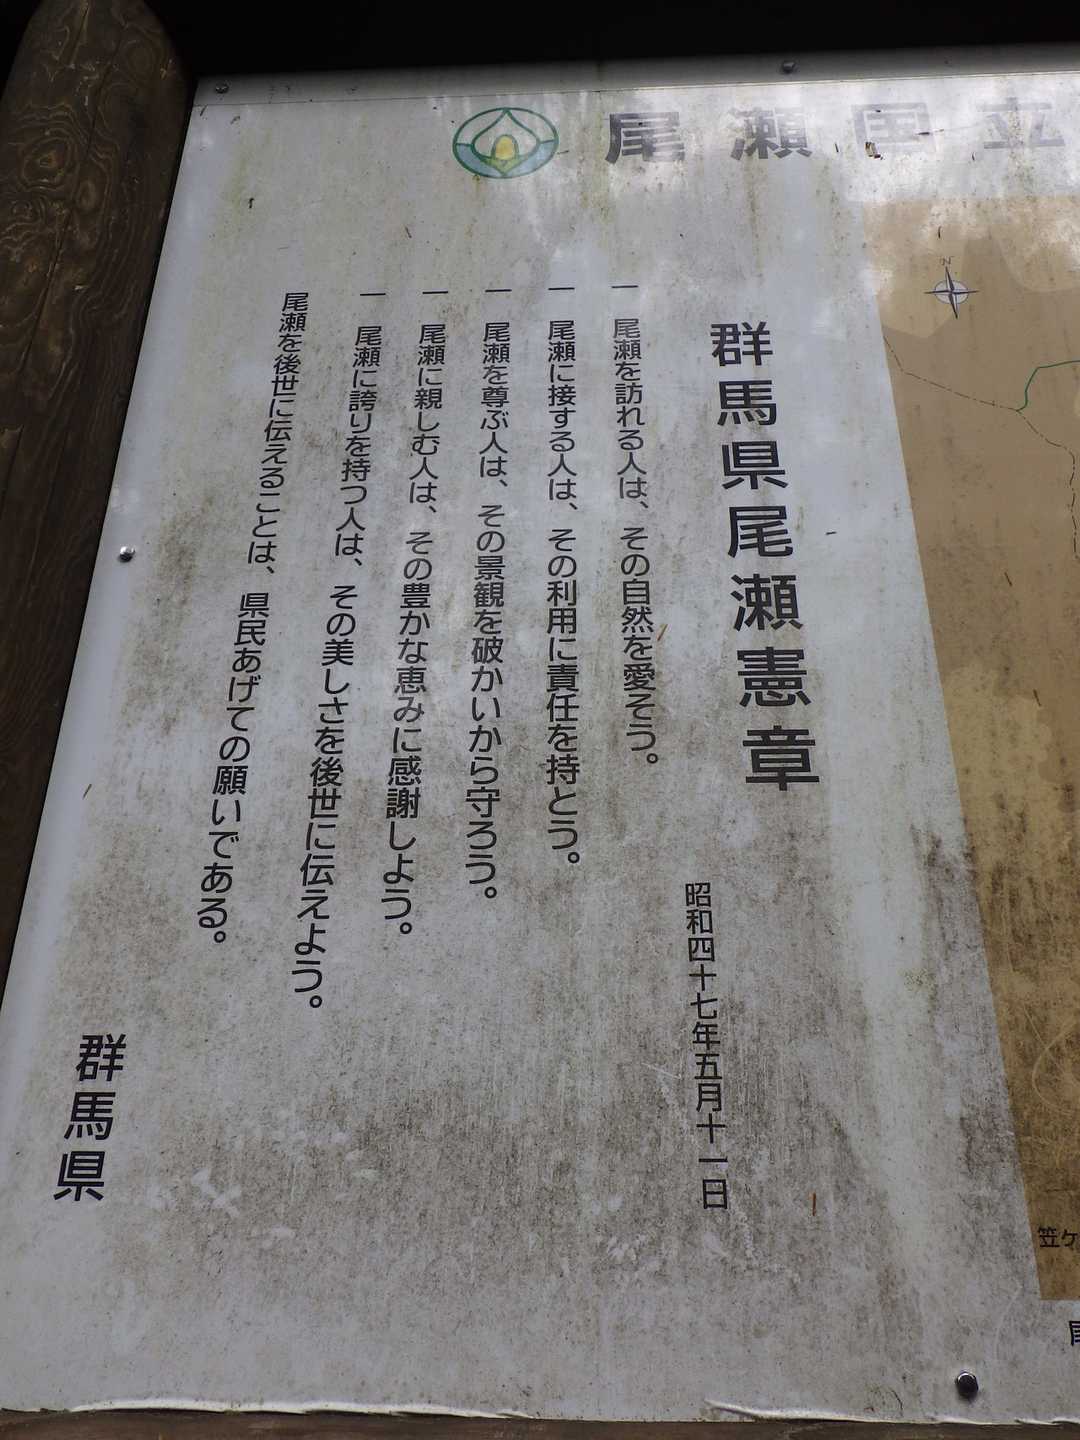 尾瀬国立
N
群馬県尾瀬憲章
昭和四十七年五月十一日
一 尾瀬を訪れる人は、その自然を愛そう。
一 尾瀬に接する人は、その利用に責任を持とう。
一 尾瀬を尊ぶ人は、その景観を破かいから守ろう。
一 尾瀬に親しむ人は、その豊かな恵みに感謝しよう。
一 尾瀬に誇りを持つ人は、その美しさを後世に伝えよう。
尾瀬を後世に伝えることは、県民あげての願いである。
群馬県
笠ケ